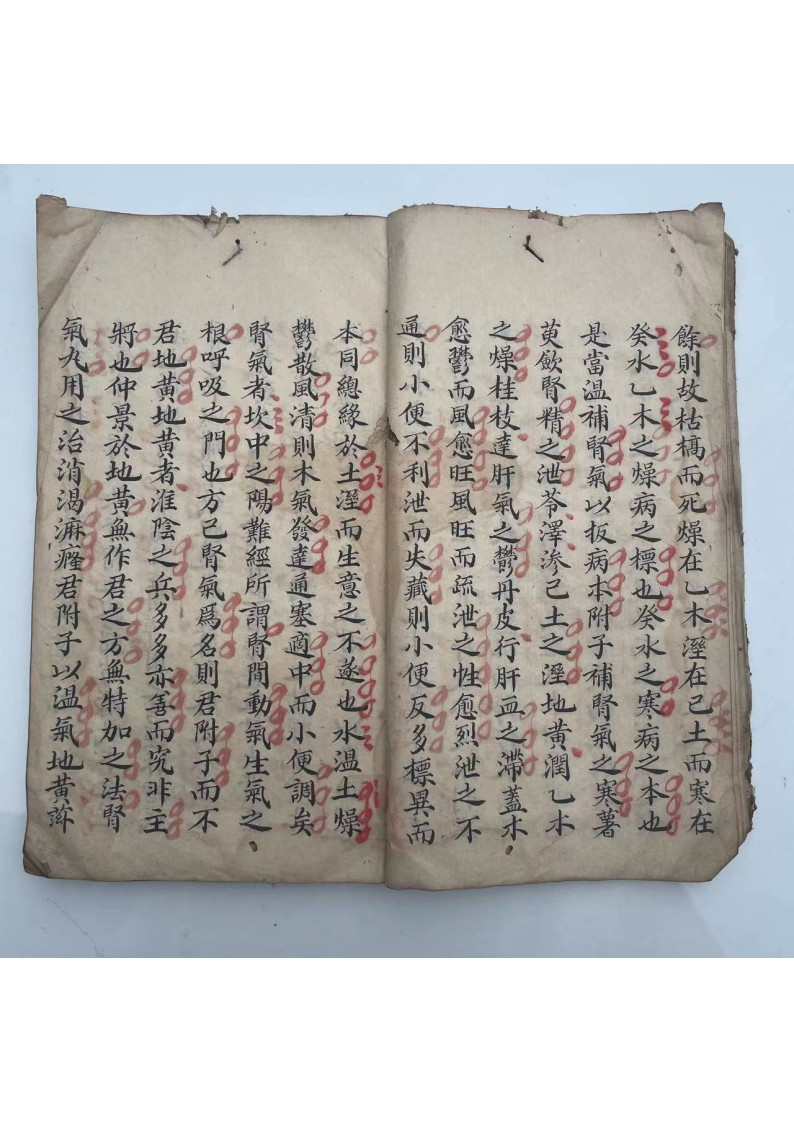 餘則故枯槁而死燥在乙木溼在己土而寒在
癸水乙木之燥病之標也癸水之寒病之本也
是當温補腎氣以扳病本附子補腎氣之寒薯
萸歛腎精之泄苓澤滲己土之溼地黃潤乙木
之燥桂枝達肝氣之鬱丹皮行肝血之滯蓋木
愈鬱而風愈旺風旺而疏泄之性愈烈泄之不
通則小便不利泄而失藏則小便反多標異而
本同總緣於土溼而生意之不遂也水温土燥
鬱散風清則木氣發達通塞適中而小便調矣
腎氣者坎中之陽難經所謂腎間動氣生氣之
根呼吸之門也方以腎氣爲名則君附子而不
君地黃地黃者淮陰之兵多多亦善而究非主
將也仲景於地黃無作君之方無特加之法腎
氣丸用之治消渴淋癃君附子以温氣地黃